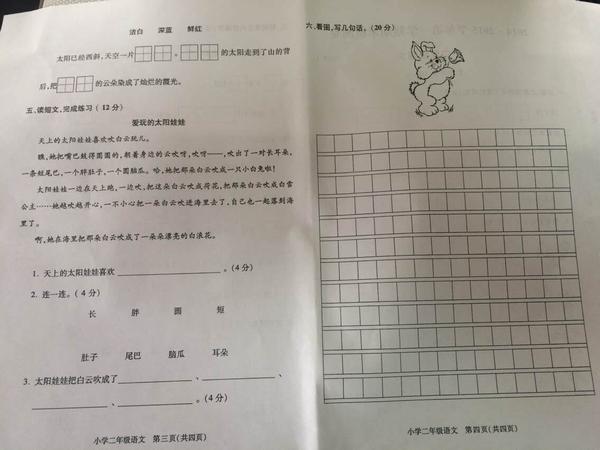 洁白 深蓝 鲜红
太阳已经西斜,天空一片 。 的太阳走到了山的背
后,把 的云朵染成了灿烂的霞光。
五、读短文,完成练习（12分）
爱玩的太阳娃娃
天上的太阳娃娃喜欢吹白云玩儿。
瞧,她把嘴巴鼓得圆圆的,朝着身边的云吹呀,吹呀——,吹出了一对长耳朵,
一条短尾巴,一个胖肚子,一个圆脑瓜。哈,她把那朵白云吹成一只小白兔啦!
太阳娃娃一边在天上跑,一边吹,把这朵白云吹成荷花,把那朵白云吹成白雪
公主……她越吹越开心,一不小心把一朵白云吹进海里去了,自己也一起落到海
里了。
啊,她在海里把那朵白云吹成了一朵朵漂亮的白浪花。
1. 天上的太阳娃娃喜欢 。(4分)
2. 连一连。(4分)
长 胖 圆 短
肚子 尾巴 脑瓜 耳朵
3. 太阳娃娃把白云吹成了 、 、
、 。(4分)
小学二年级语文 第三页(共四页)
六、看图,写几句话。(20分)
小学二年级语文 第四页(共四页)